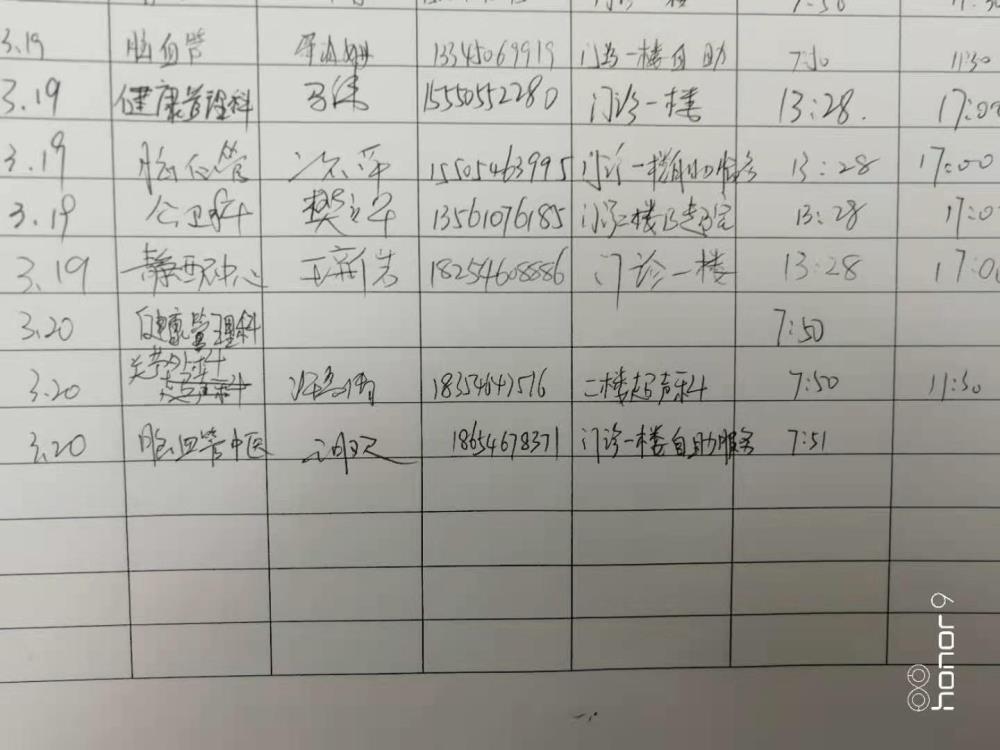 门诊一楼 7:50 11:30
3.19 脑血管 13345069919 门诊一楼自助 7:50 11:30
3.19 健康管理科 马伟 15550552280 门诊一楼 13:28. 17:00
3.19 脑血管 15505463995 门诊一楼自助服务 13:28 17:00
3.19 公卫科 13561076185 门诊二楼 13:28 17:0
3.19 静配中心 王新 18254608886 门诊一楼 13:28 17:00
3.20 健康管理科 7:50
3.20 18354647576 二楼超声科 7:50 11:30
3.20 脑血管中医 18654678371 门诊一楼自助服务 7:51
honor 9